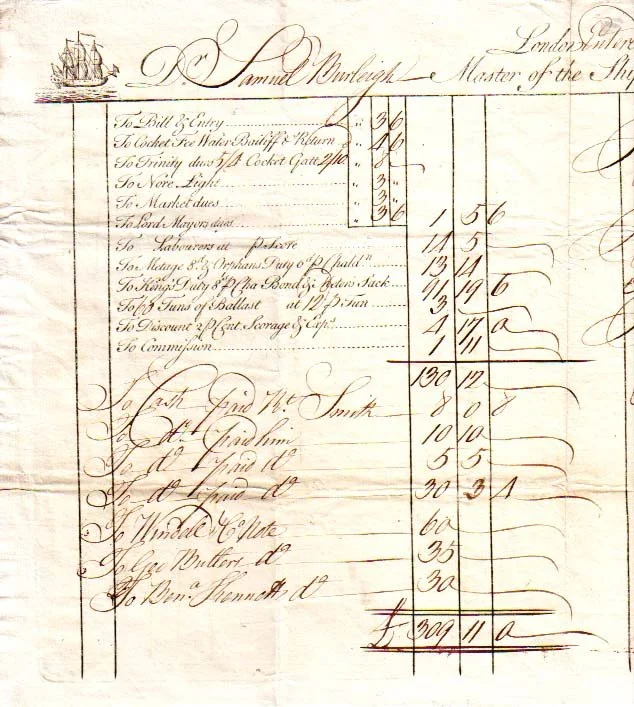 London Entere
Dr. Samuel Burleigh Master of the Ship
To Bill & Entry " 3 6
To Cocket Fee Water Bailiff & Return " 4 6
To Trinity dues 5/4 Cocket Gatt 2/10 " 8
To Nore Light " 3 "
To Market dues " 3 "
To Lord Mayors dues " 3 6 1 5 6
To Labourers at P Score 14 5
To Metage 8d & Orphans Duty 6d P Chaldn 13 14
To Kings Duty P Cha Bond & Sack 91 19 6
To 60 Tuns of Ballast at 12 P Tun 3
To Discount 2 P Cent. Scorage & Exps 4 17 0
To Commission 1 11
130 12
To Cash paid Rt. Smith 8 0 8
To do. paid him 10 10
To do paid do 5 5
To do paid do 30 3 4
To & Co Note 60
To Geo Butters do 35
To Benja Kennett do 30
£ 309 11 0